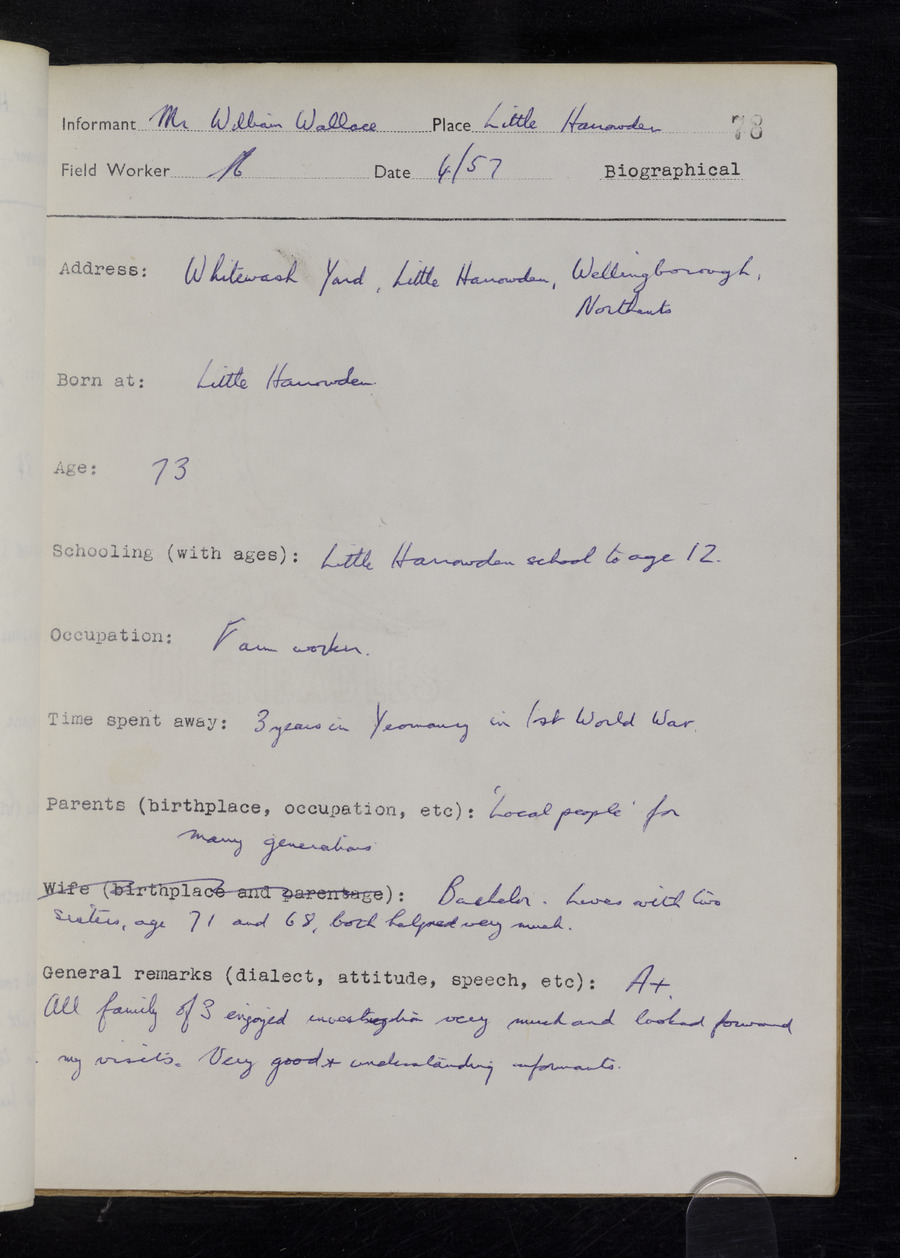 Informant Mr William Wallace Place Little Harrowden 78
Field Worker Date 4/57 Biographical
Address: Whitewash Yard, Little Harrowden, Wellingborough,
Northants
Born at: Little Harrowden.
Age: 73
Schooling (with ages): Little Harrowden school to age 12.
Occupation: Farm worker.
Time spent away: 3 years in Yeomanry in 1st World War.
Parents (birthplace, occupation, etc): 'Local people' for
many generations
Wife (birthplace and parentage): Bachelor. Lives with two
sisters, age 71 and 68, both helped very much.
General remarks (dialect, attitude, speech, etc): A+.
All family of 3 enjoyed investigation very much and looked forward
my visits. Very good + understanding informants.